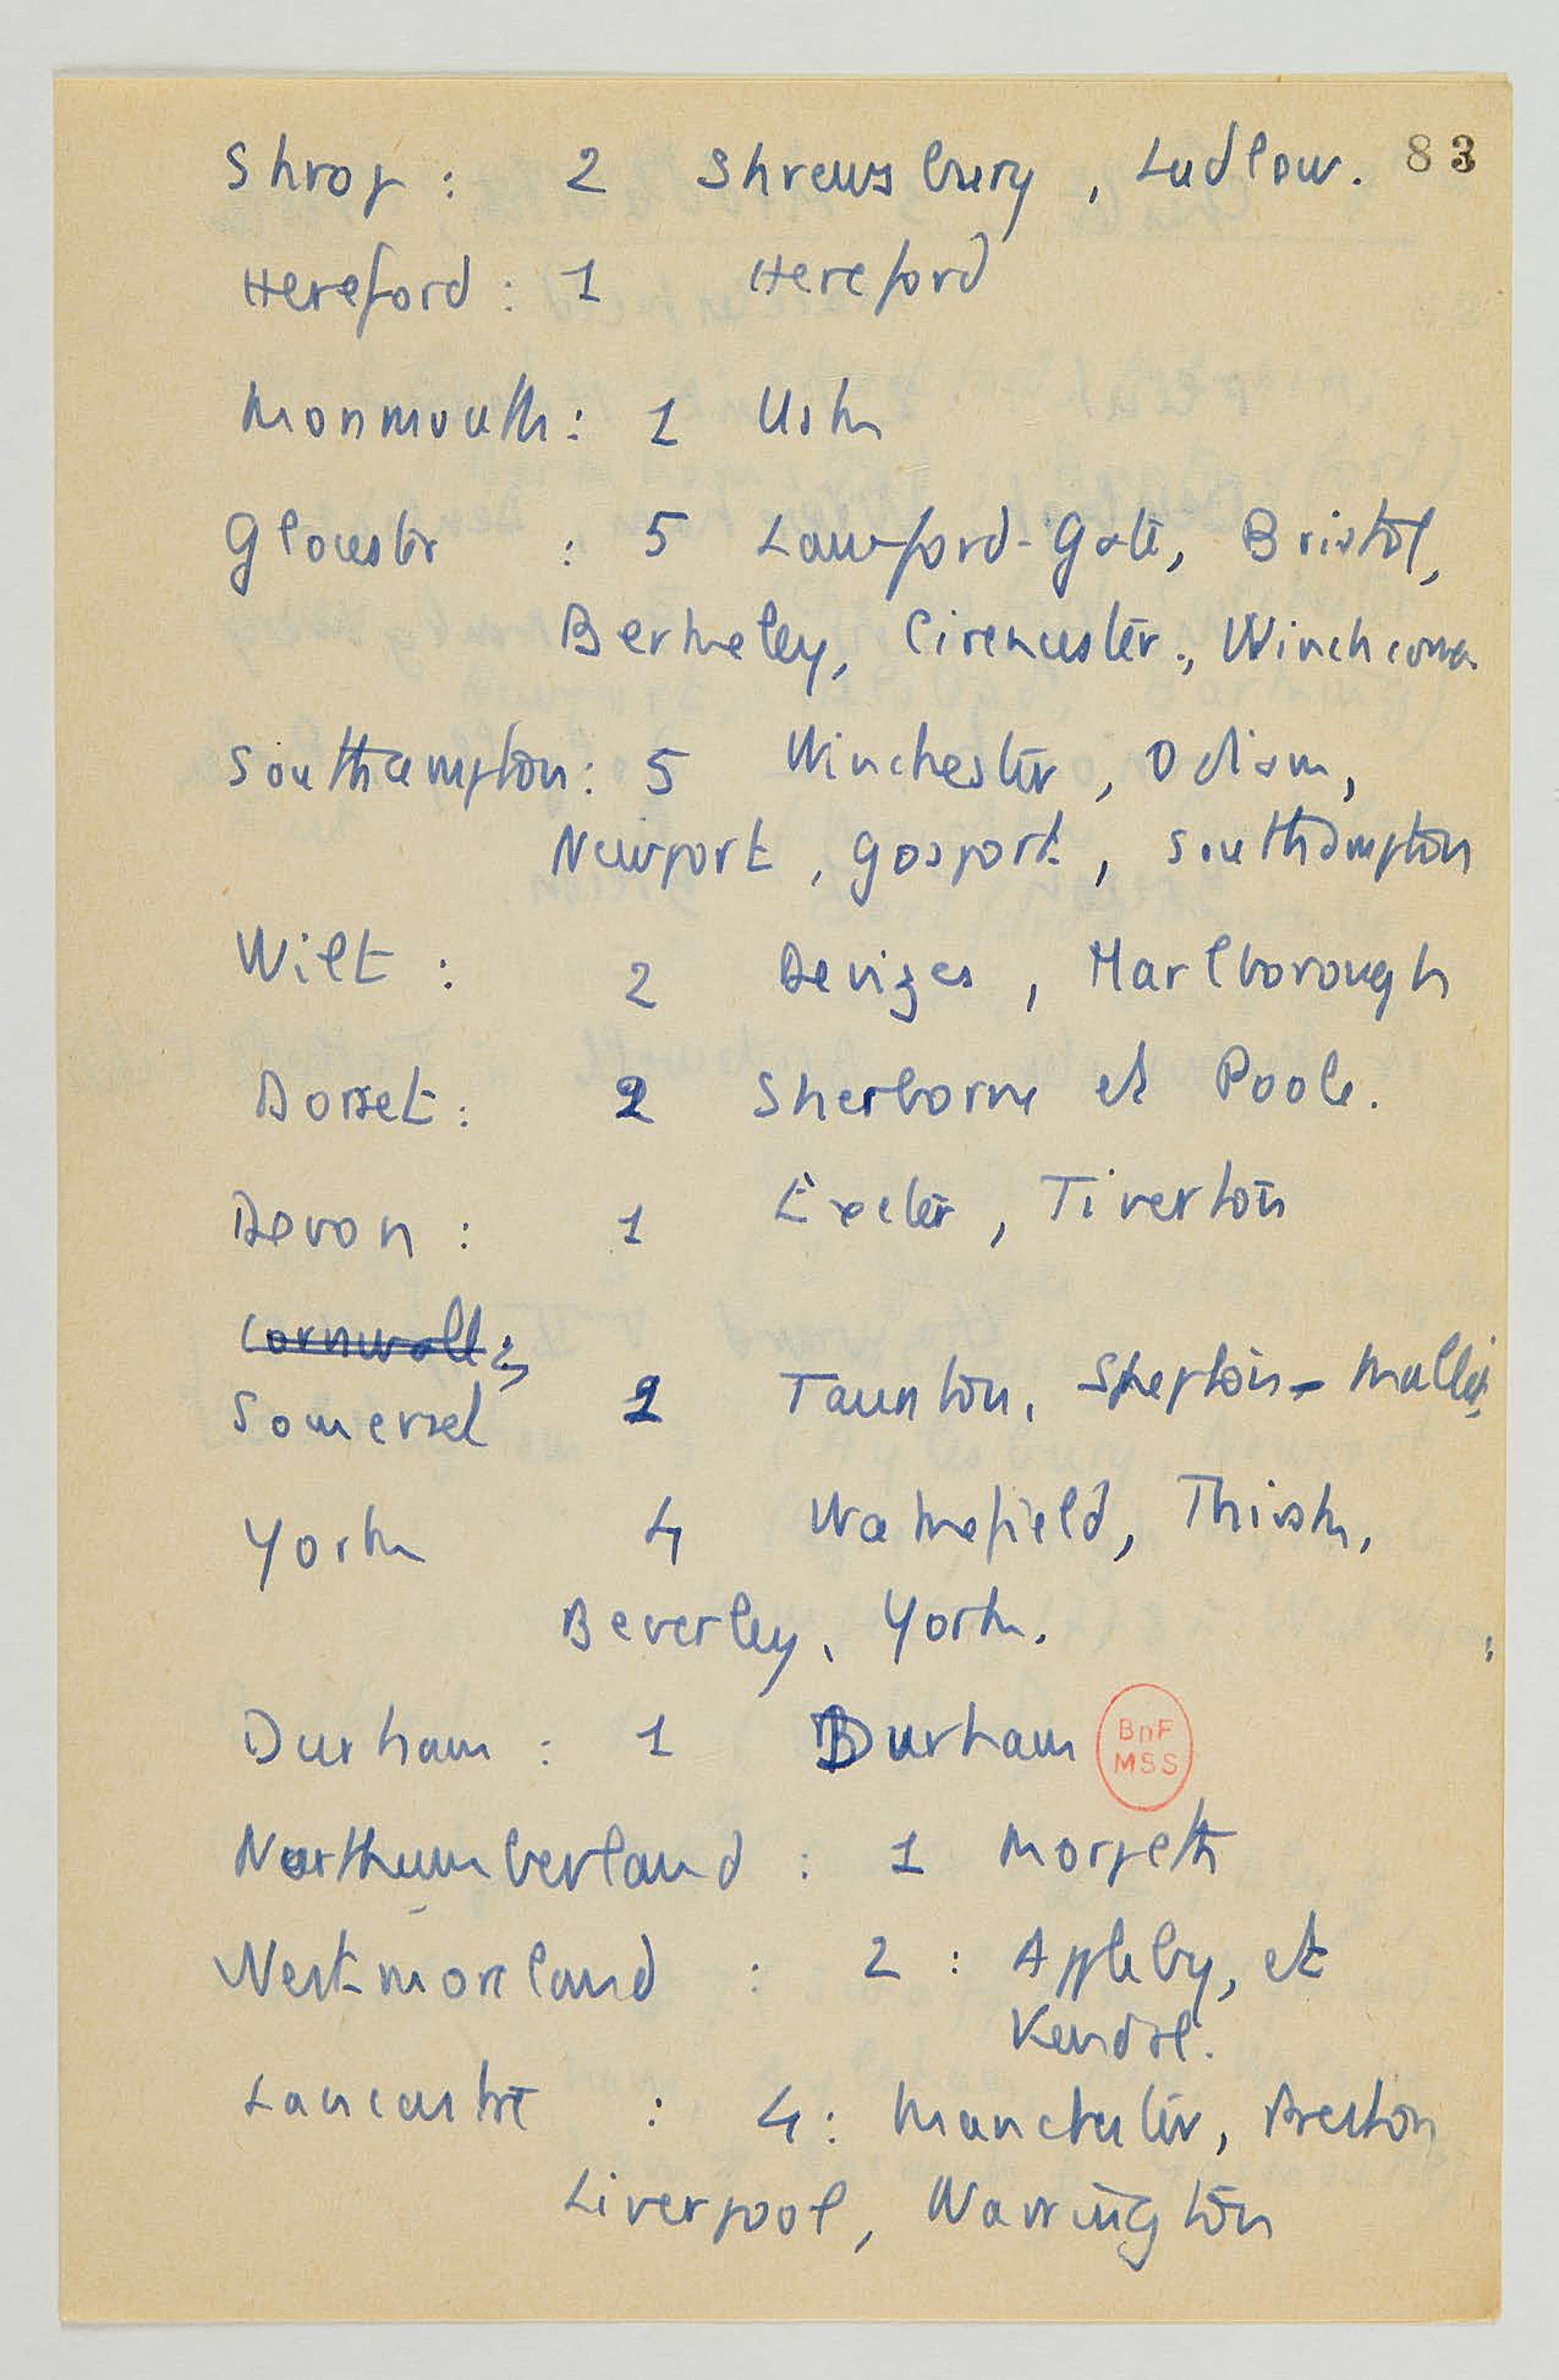 Shrop : 2 Shrewsbury , Ludlow. 83
Hereford : 1 Hereford
Monmouth : 1 Usk
Gloucester : 5 Lawford-Gate, Bristol,
Berkeley, Cirencester., Winchcomb
Southampton : 5 Winchester , Odiam,
Newport , Gosport , Southampton
Wilt : 2 Devizes , Marlborough
Dorset : 2 Sherborne et Poole.
Devon : 1 Exeter , Tiverton
Cornwall :
Somerset 2 Taunton, Shepton-Mallet
York 4 Wakefield, Thirsk,
Beverley, York.
Durham : 1 Durham
BnF
MSS
Northumberland : 1 Morpeth
Westmoreland : 2 : Appleby, et
Kendal.
Lancastre : 4 : Manchester, Preston
Liverpool, Warrington